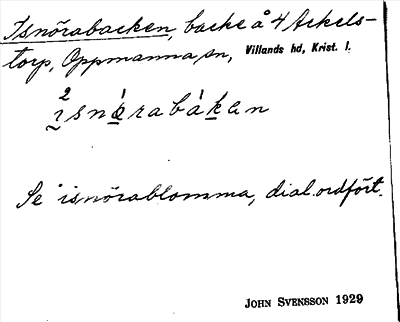 Isnörabacken, backe å 4 Arkels-
torp, Oppmanna sn, Villands hd, Krist. l.
2
ısnörabàken
Se isnörablomma, dial.ordfört.
JOHN SVENSSON 1929